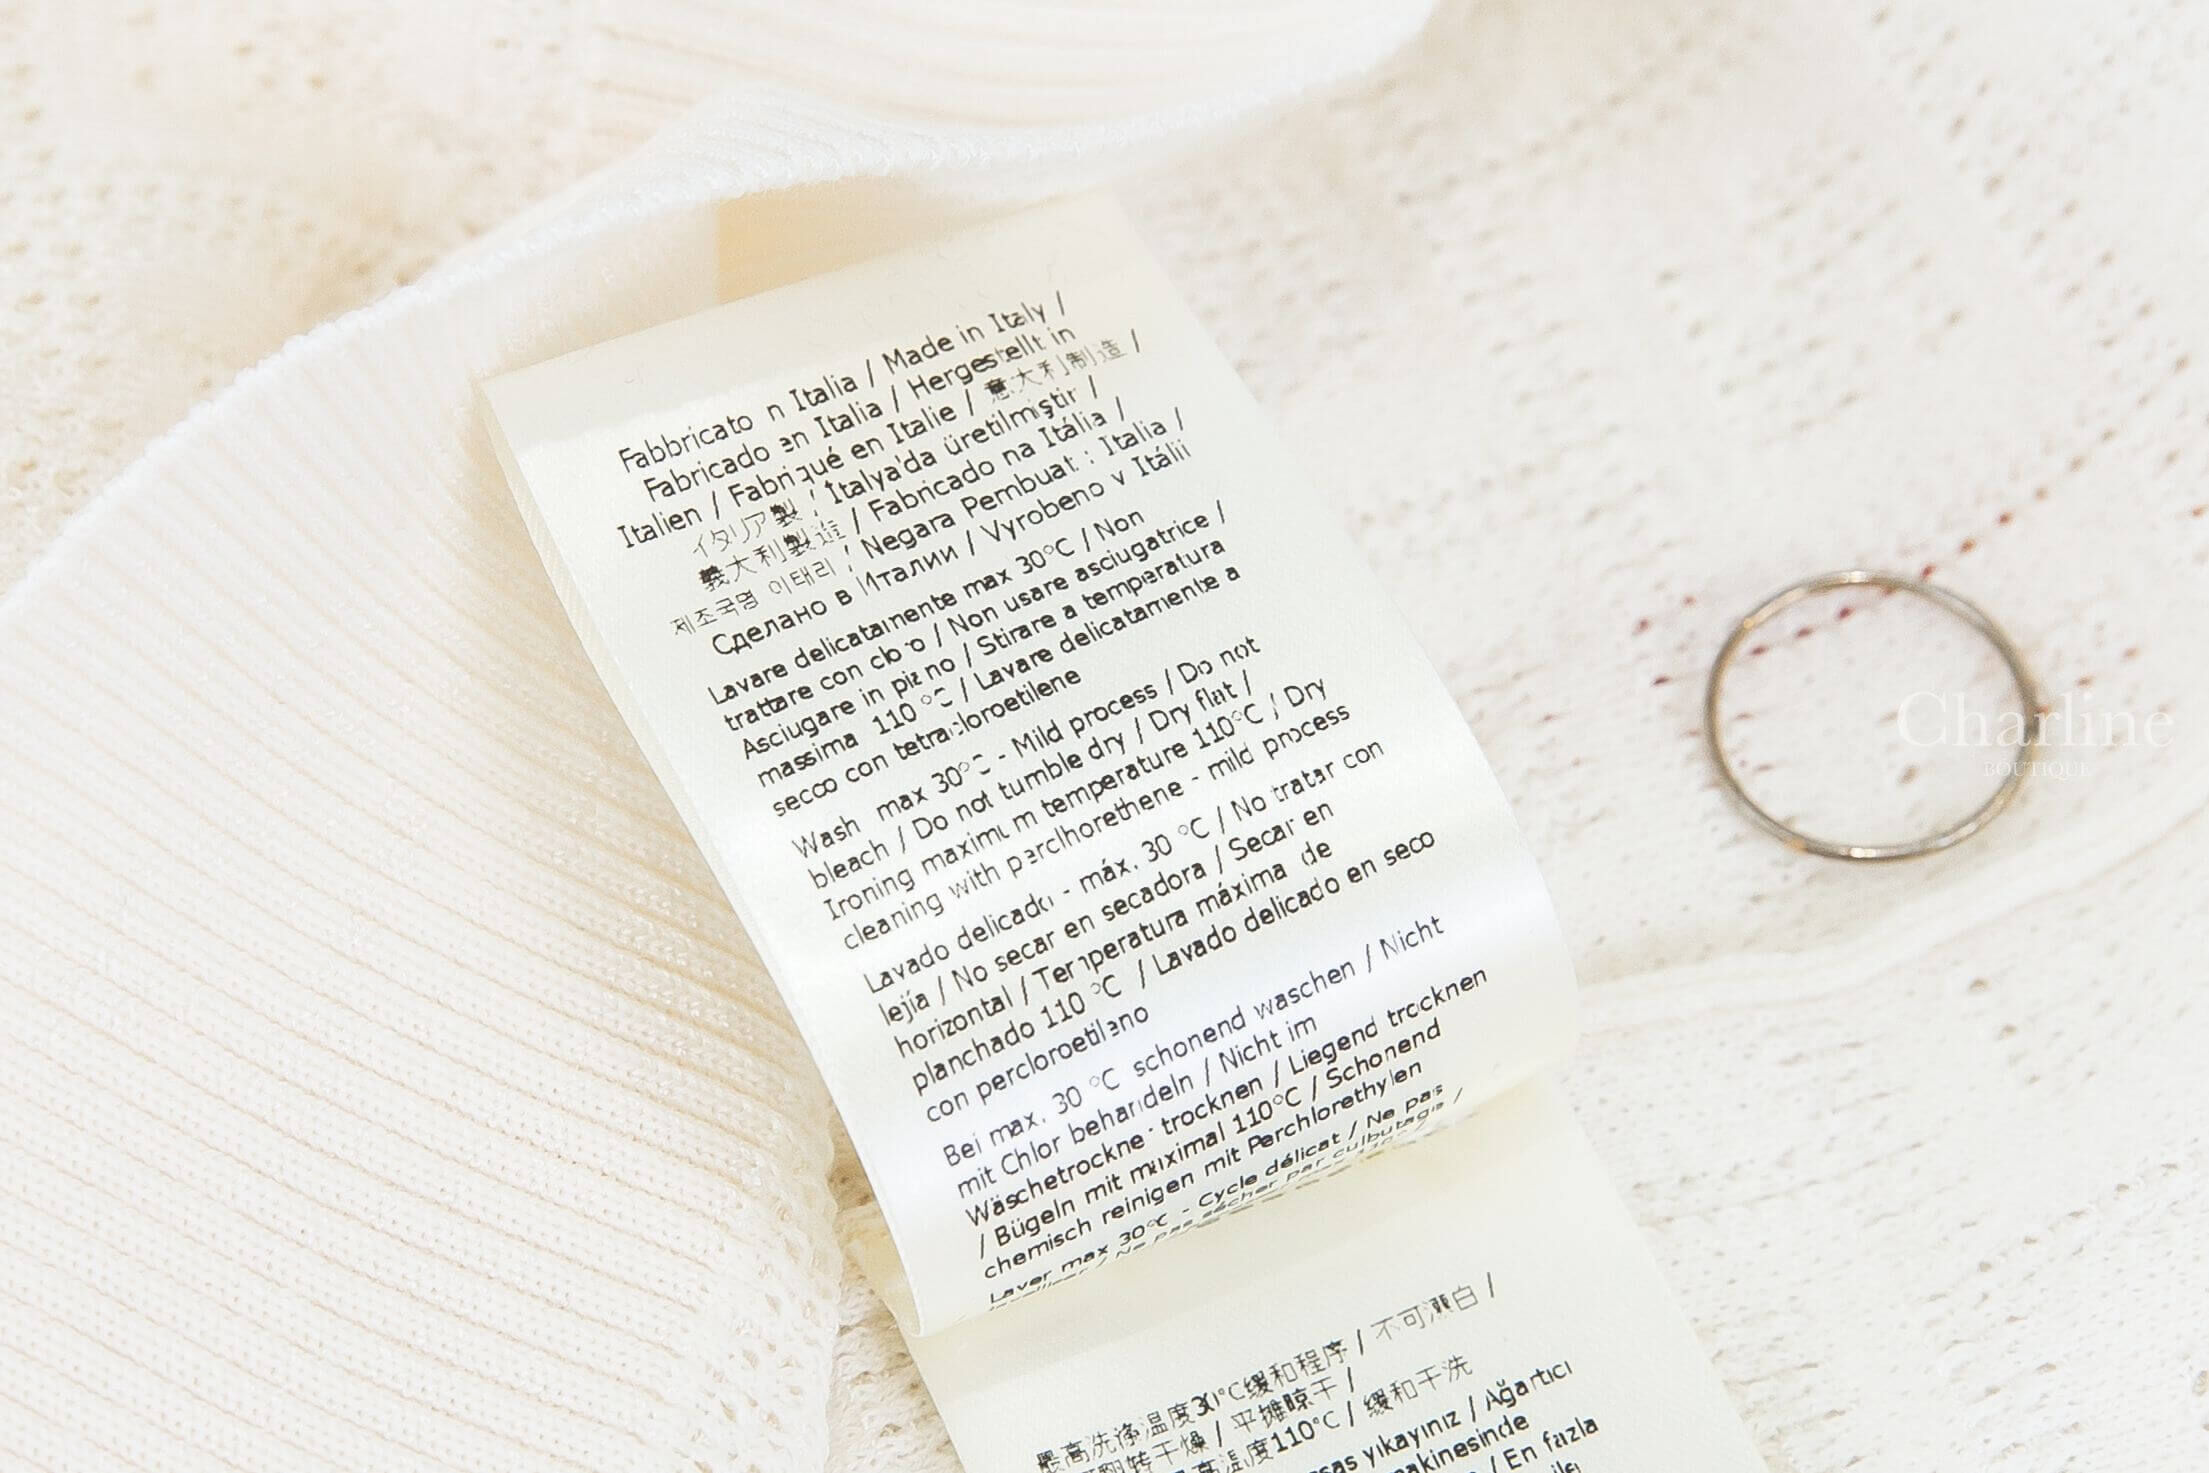 Fabbricato in Italia / Made in Italy /
Fabricado en Italia / Hergestellt in
Italien / Fabriqué en Italie / 意大利制造 /
イタリア製 / İtalya'da üretilmiştir /
義大利製造 / Fabricado na Itália /
제조국명 이태리 / Negara Pembuat : Italia /
Сделано в Италии / Vyrobeno v Itálii
Lavare delicatamente max 30°C / Non
trattare con cloro / Non usare asciugatrice /
Asciugare in piano / Stirare a temperatura
massima 110 °C / Lavare delicatamente a
secco con tetracloroetilene
Wash max 30°C - Mild process / Do not
bleach / Do not tumble dry / Dry flat /
Ironing maximum temperature 110°C / Dry
cleaning with perclhorethene - mild process
Lavado delicado - máx. 30 °C / No tratar con
lejía / No secar en secadora / Secar en
horizontal / Temperatura máxima de
planchado 110 °C / Lavado delicado en seco
con percloroetileno
Bei max. 30 °C schonend waschen / Nicht
mit Chlor behandeln / Nicht im
Wäschetrockner trocknen / Liegend trocknen
/ Bügeln mit maximal 110°C / Schonend
chemisch reinigen mit Perchlorethylen
Laver max 30°C - Cycle délicat / Ne pas
/ Ne pas sécher par culbutage /
最高洗涤温度30°C缓和程序 / 不可漂白 /
翻转干燥 / 平摊晾干 /
高温度110°C / 缓和干洗
yıkayınız / Ağartıcı
/ En fazla
Charline
BOUTIQUE